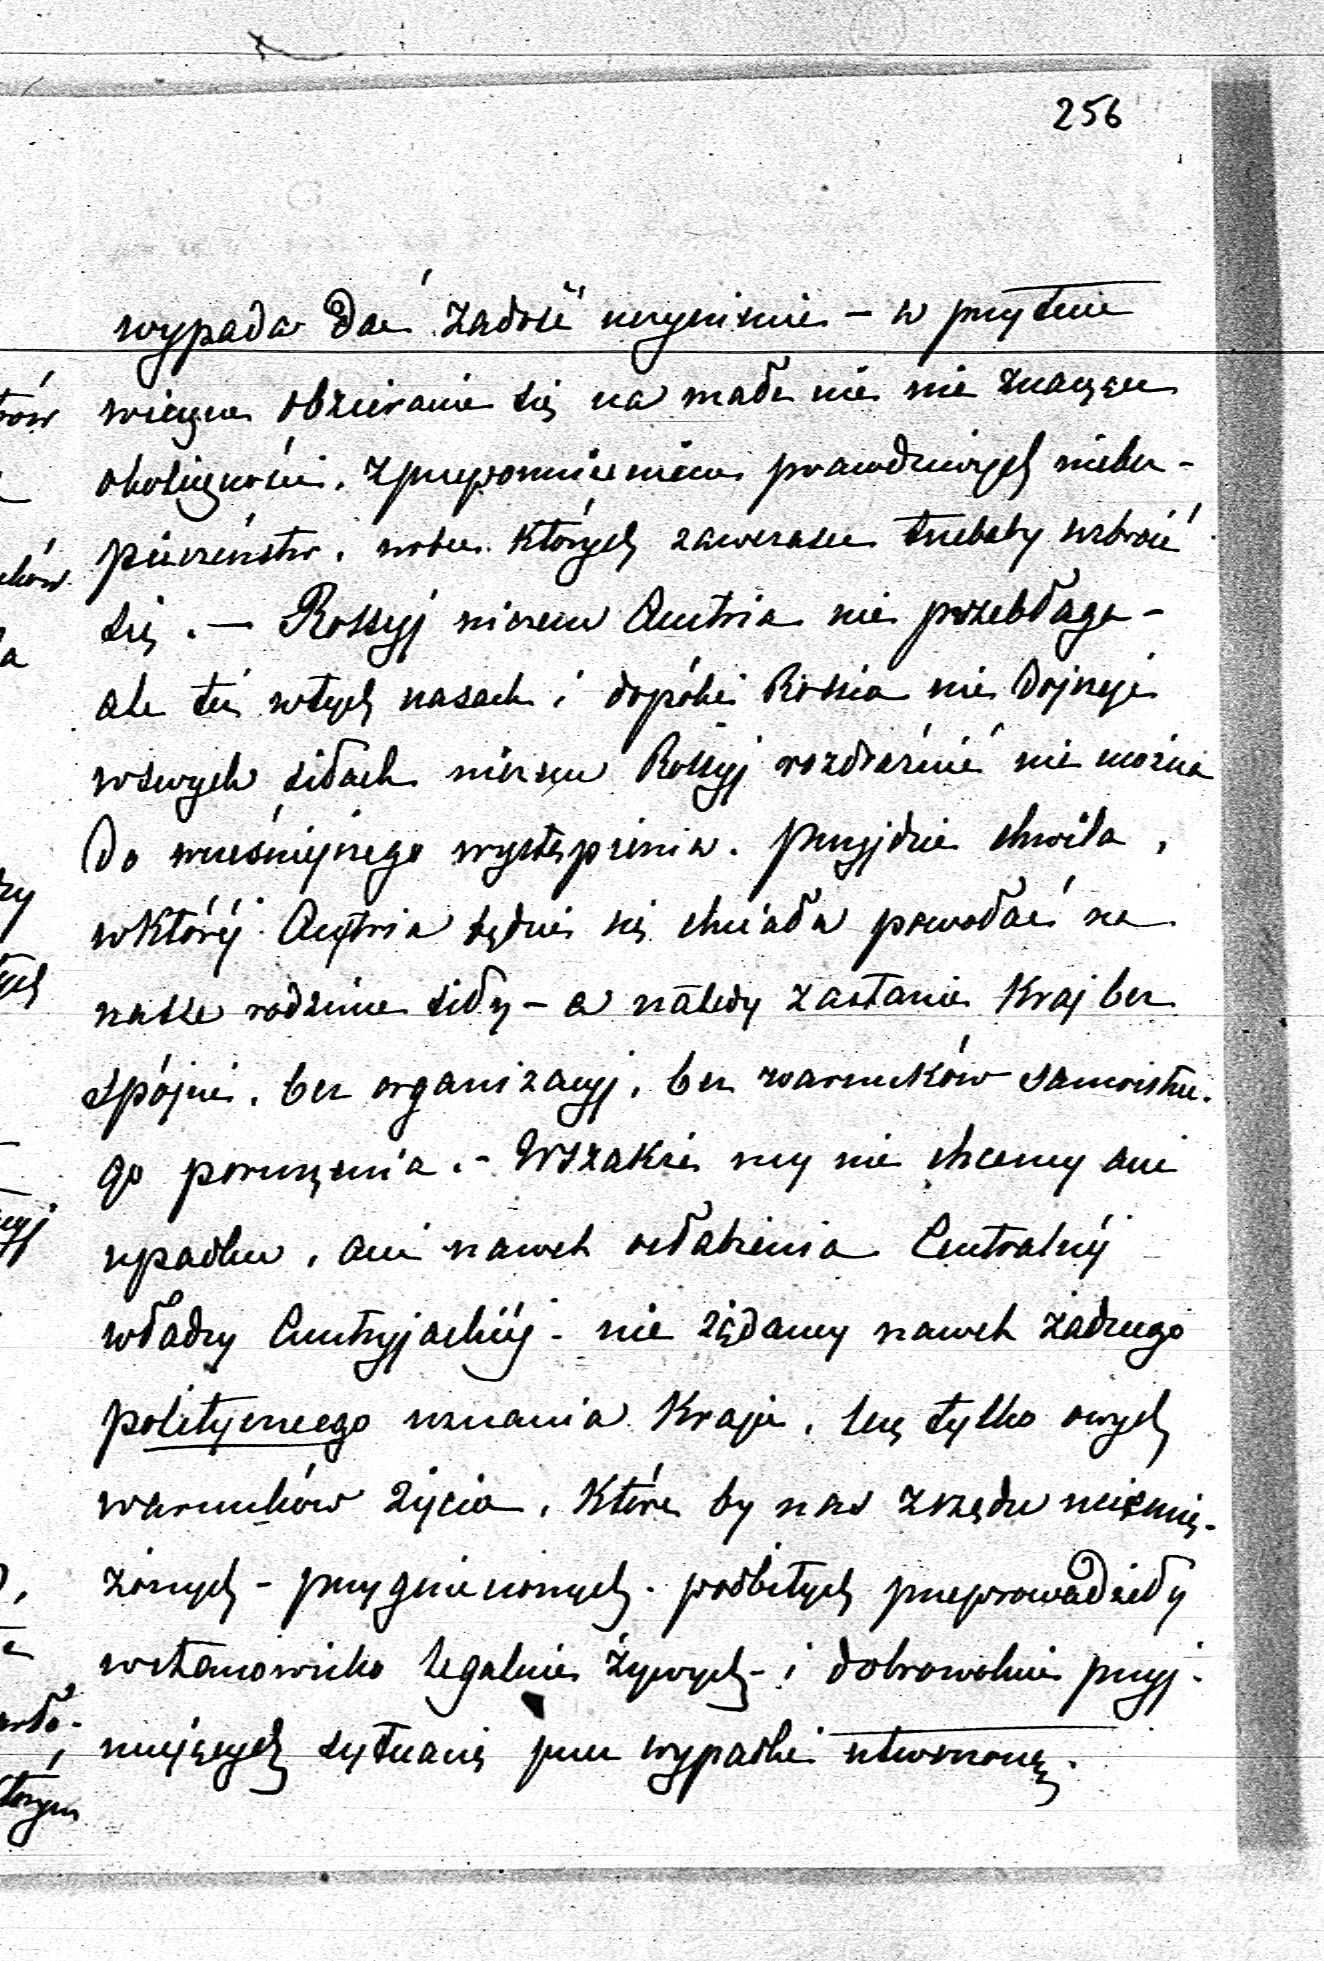 256
wypada dać zadość uczynienie – w przytem
wieczne obzieranie się na małe nic nie znaczące
okoliczności, z przepomnieniem prawdziwych niebez-
pieczeństw, wobec których zawczasu trzebaby uzbroić
się. — Rossyj niczem Austria nie przebłaga –
ale też w tych czasach i dopóki Rosia nie dojrzeje
w swych siłach niczem Rossyj rozdrażnić nie można
do wcześniejszego wystąpienia. Przyjdzie chwila,
w któréj Austria będzie się chciała powołać na
nasze rodzinne siły – a natedy zastanie Kraj bez
spójni, bez organizacyj, bez warunków samoistne-
go poruszenia. – Wszakże my nie chcemy ani
upadku, ani nawet osłabienia Centralnéj
władzy Austryjackiéj – nie żądamy nawet żadnego
politycznego uznania Kraju, lecz tylko owych
warunków życia, które by nas z rzędu uciemię-
żonych – przygniecionych – podbitych przeprowadziły
w stanowisko legalnie żywych – i dobrowolnie przyj-
mujących sytuacię przez wypadki utworzoną.